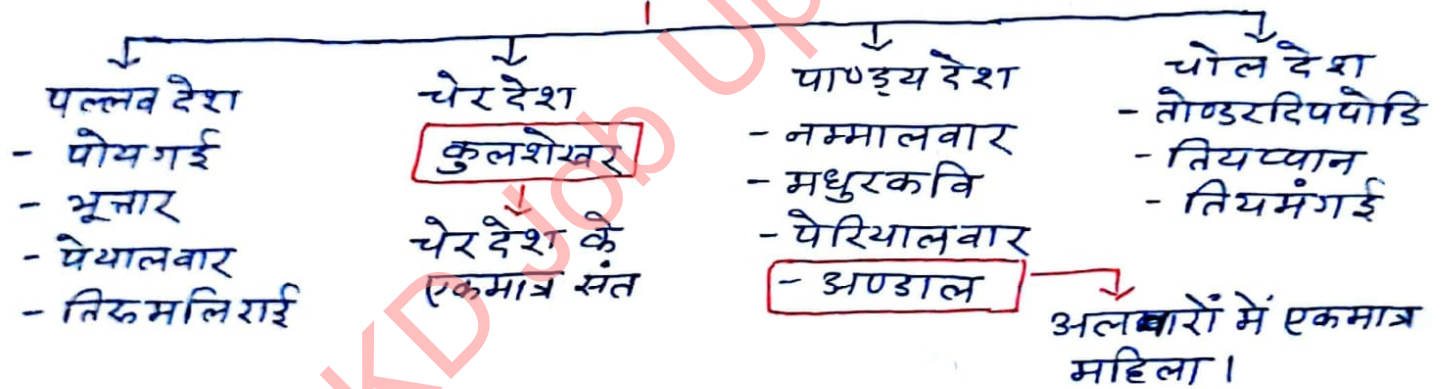 पल्लव देश
- पोयगई
- भूत्तार
- पेयालवार
- तिरुमलिराई
चेर देश
कुलशेखर
चेर देश के
एकमात्र संत
पाण्ड्य देश
- नम्मालवार
- मधुरकवि
- पेरियालवार
- अण्डाल
अलवारों में एकमात्र
महिला।
चोल देश
- तोण्डरदिपपोडि
- तियप्पान
- तियमंगई
KD Job Up